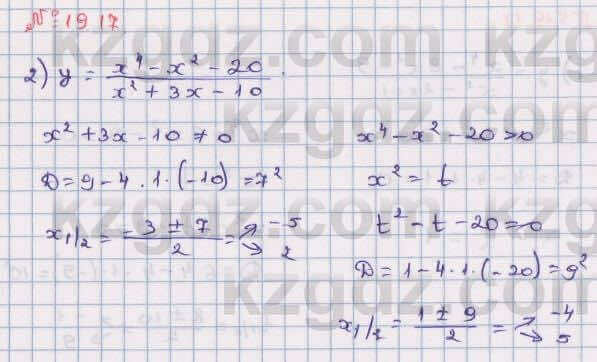 № 1917
2) y = \frac{x⁴ - x² - 20}{x² + 3x - 10}
x² + 3x - 10 ≠ 0
D = 9 - 4 · 1 · (-10) = 7²
x₁/₂ = \frac{-3 ± 7}{2} = -5
2
x⁴ - x² - 20 > 0
x² = t
t² - t - 20 = 0
D = 1 - 4 · 1 · (-20) = 9²
x₁/₂ = \frac{1 ± 9}{2} = -4
5
kzgdz.com
kzgdz.com
kzgdz.com